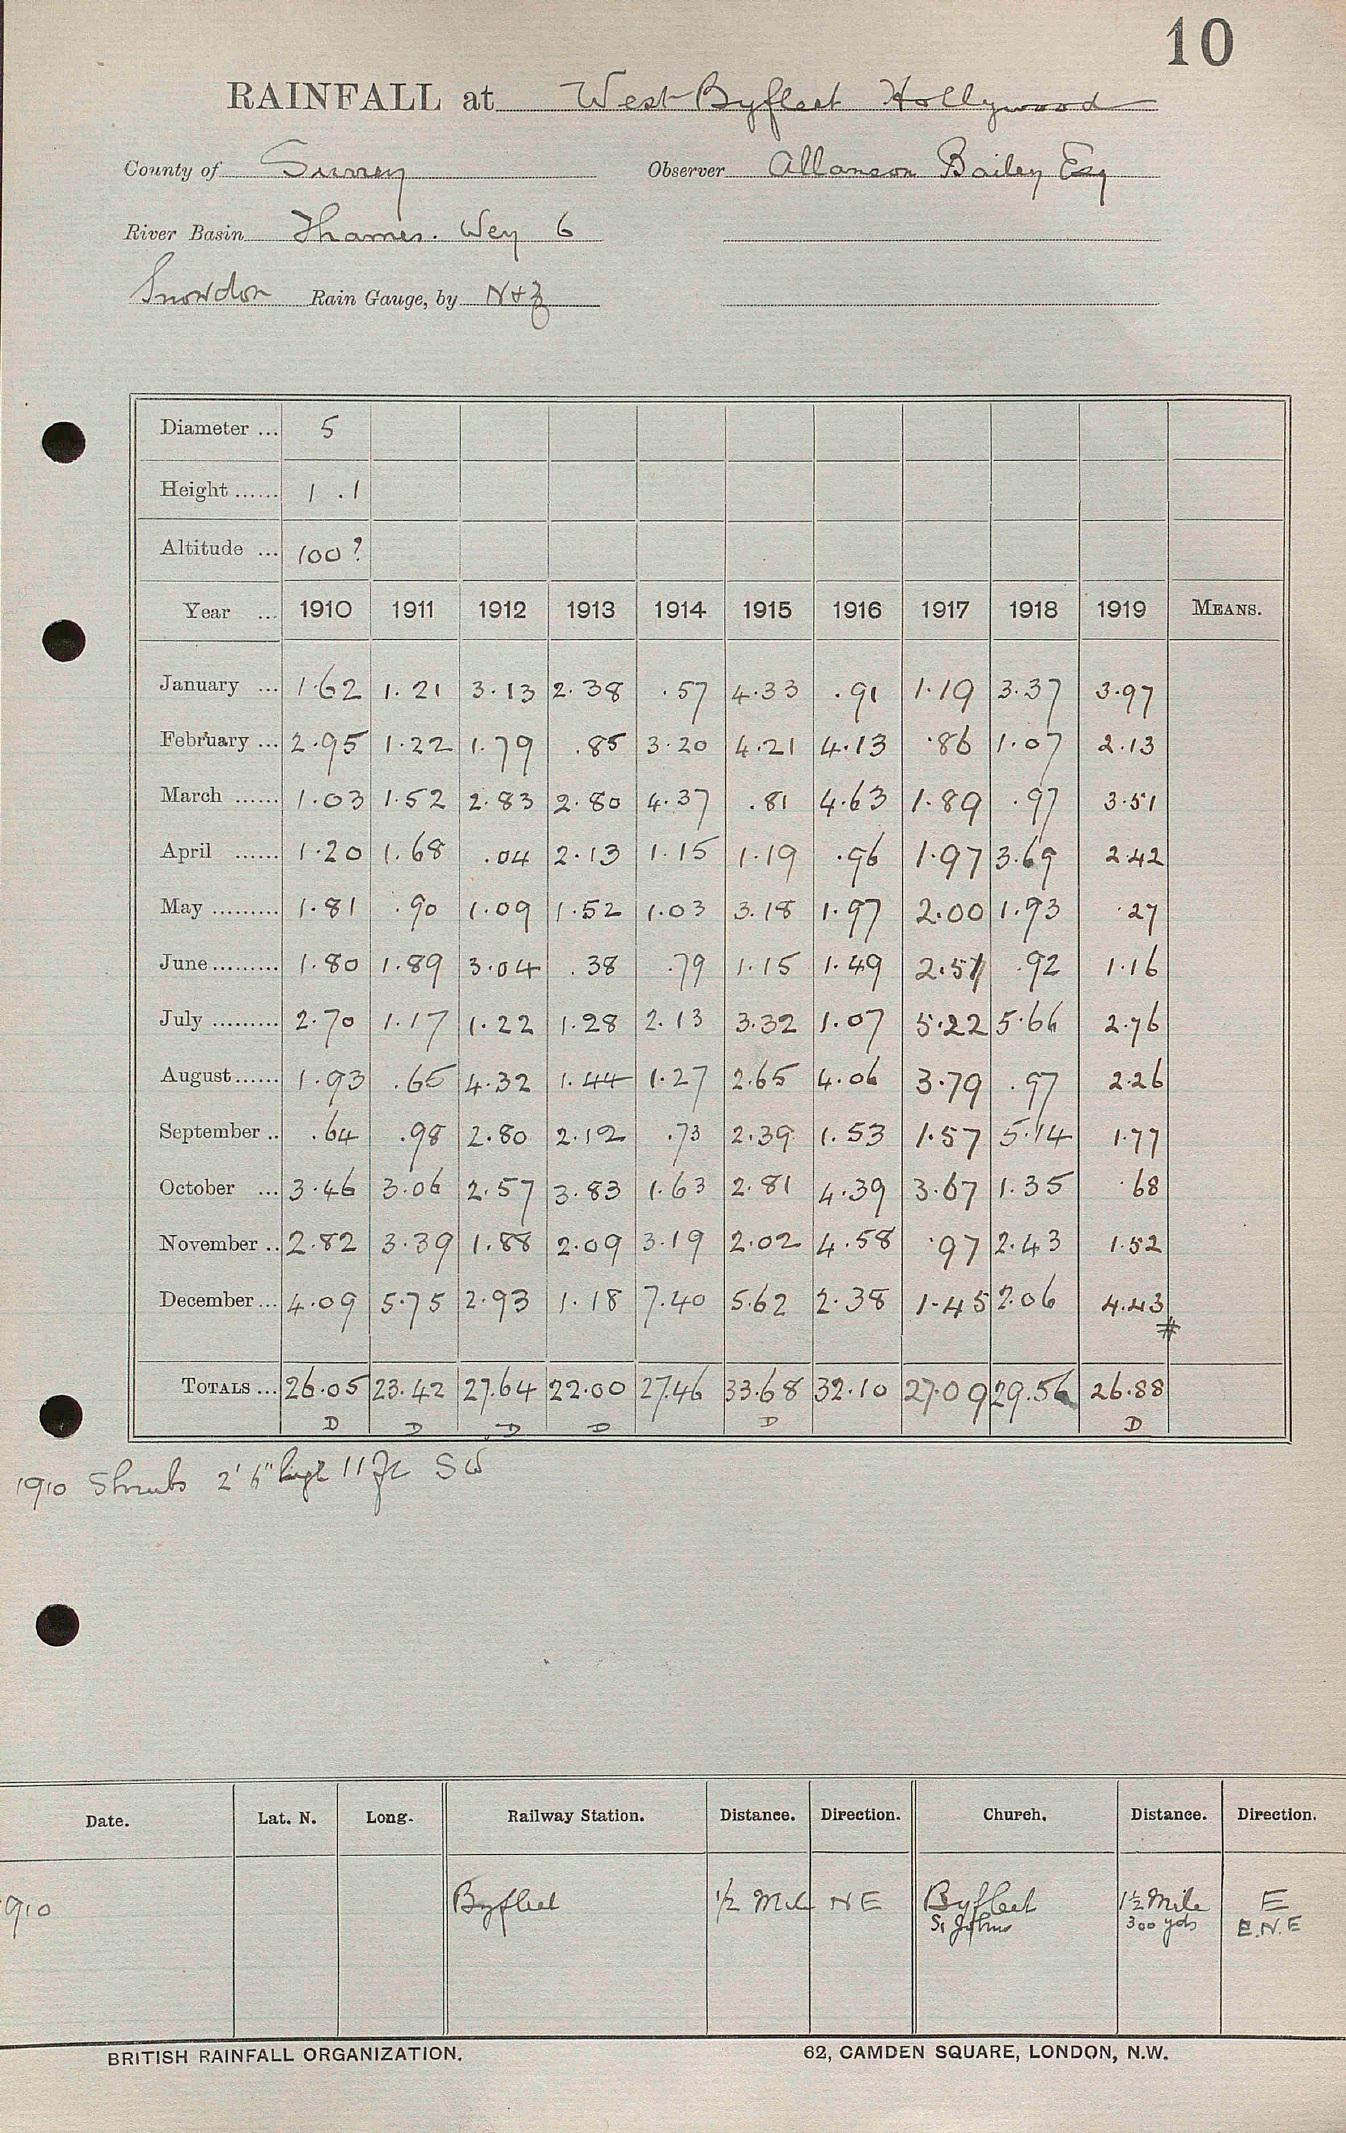 10
RAINFALL at West Byfleet Hollywood
County of Surrey Observer Allanson Bailey Esq
River Basin Thames. Wey 6
Snowdon Rain Gauge, by N+Z
Diameter ... 5
Height ...... 1 . 1
Altitude ... 100?
Year ... 1910 1911 1912 1913 1914 1915 1916 1917 1918 1919 MEANS.
January ... 1.62 1.21 3.13 2.38 .57 4.33 .91 1.19 3.37 3.97
February ... 2.95 1.22 1.79 .85 3.20 4.21 4.13 .86 1.07 2.13
March ...... 1.03 1.52 2.83 2.80 4.37 .81 4.63 1.89 .97 3.51
April ...... 1.20 1.68 .04 2.13 1.15 1.19 .96 1.97 3.69 2.42
May ......... 1.81 .90 1.09 1.52 1.03 3.18 1.97 2.00 1.93 .27
June ......... 1.80 1.89 3.04 .38 .79 1.15 1.49 2.51 .92 1.16
July ......... 2.70 1.17 1.22 1.28 2.13 3.32 1.07 5.22 5.66 2.76
August ...... 1.93 .65 4.32 1.44 1.27 2.65 4.06 3.79 .97 2.26
September .. .64 .98 2.80 2.12 .73 2.39 1.53 1.57 5.14 1.77
October ... 3.46 3.06 2.57 3.83 1.63 2.81 4.39 3.67 1.35 .68
November .. 2.82 3.39 1.88 2.09 3.19 2.02 4.58 .97 2.43 1.52
December ... 4.09 5.75 2.93 1.18 7.40 5.62 2.38 1.45 2.06 4.43
#
TOTALS ... 26.05 23.42 27.64 22.00 27.46 33.68 32.10 27.09 29.56 26.88
D D D D D D
1910 Shrubs 2' 6" high 11 ft SW
Date. Lat. N. Long. Railway Station. Distance. Direction. Church. Distance. Direction.
910 Byfleet 1/2 Mile NE Byfleet 1½ Mile E
St Johns 300 yds E.N.E
BRITISH RAINFALL ORGANIZATION. 62, CAMDEN SQUARE, LONDON, N.W.